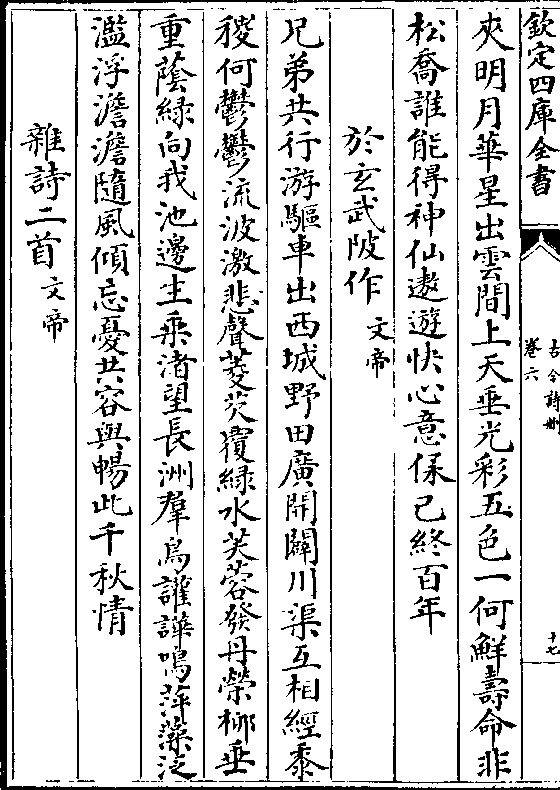 欽定四庫全書
古今詩刪
卷六
十七
夾明月華星出雲間上天垂光彩五色一何鮮壽命非
松喬誰能得神仙遨遊快心意保己終百年
於玄武陂作 文帝
兄弟共行游驅車出西城野田廣開闢川渠互相經黍
稷何鬱鬱流波激悲聲菱芡覆綠水芙蓉發丹榮柳垂
重蔭綠向我池邊生乗渚望長洲羣鳥讙譁鳴萍藻泛
濫浮澹澹隨風傾忘憂共容與暢此千秋情
雜詩二首 文帝